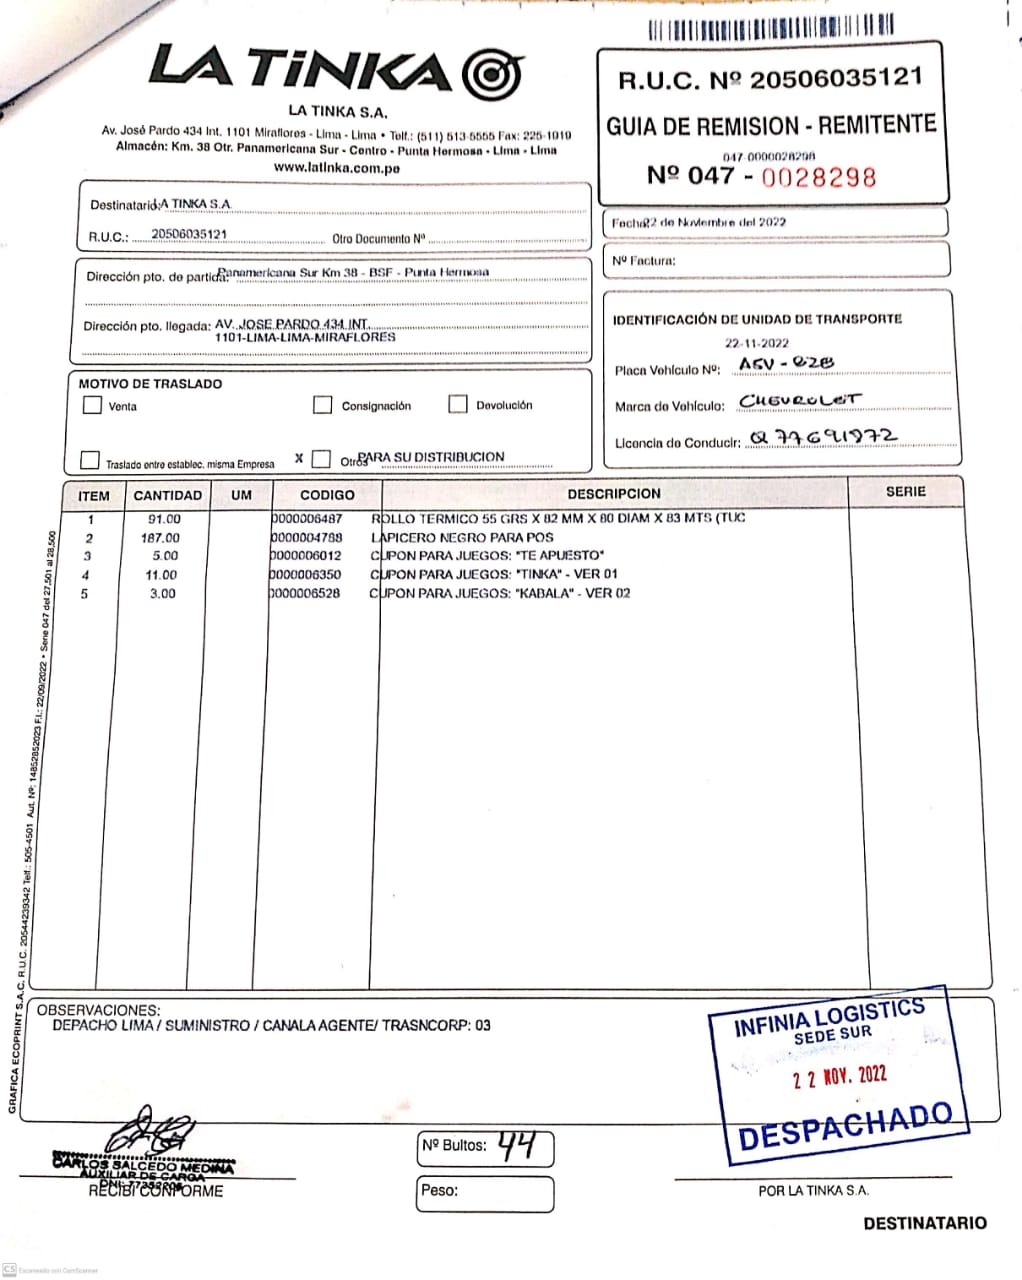 LA TiNKA
LA TINKA S.A.
Av. José Pardo 434 Int. 1101 Miraflores - Lima - Lima • Telf.: (511) 513-5555 Fax: 225-1019
Almacén: Km. 38 Otr. Panamericana Sur - Centro - Punta Hermosa - Lima - Lima
www.latinka.com.pe
R.U.C. Nº 20506035121
GUIA DE REMISION - REMITENTE
047-0000028298
Nº 047 - 0028298
Destinatario: LA TINKA S.A.
R.U.C.: 20506035121 Otro Documento Nº
Fecha: 22 de Noviembre del 2022
Nº Factura:
Dirección pto. de partida: Panamericana Sur Km 38 - BSF - Punta Hermosa
Dirección pto. llegada: AV. JOSE PARDO 434 INT.
1101-LIMA-LIMA-MIRAFLORES
IDENTIFICACIÓN DE UNIDAD DE TRANSPORTE
22-11-2022
Placa Vehículo Nº: A5V-828
Marca de Vehículo: CHEVROLET
Licencia de Conducir: Q77691872
MOTIVO DE TRASLADO
Venta Consignación Devolución
Traslado entre establec. misma Empresa X Otros PARA SU DISTRIBUCION
ITEM CANTIDAD UM CODIGO DESCRIPCION SERIE
1 91.00 0000006487 ROLLO TERMICO 55 GRS X 82 MM X 80 DIAM X 83 MTS (TUC
2 187.00 0000004788 LAPICERO NEGRO PARA POS
3 5.00 0000006012 CUPON PARA JUEGOS: "TE APUESTO"
4 11.00 0000006350 CUPON PARA JUEGOS: "TINKA" - VER 01
5 3.00 0000006528 CUPON PARA JUEGOS: "KABALA" - VER 02
GRAFICA ECOPRINT S.A.C. R.U.C. 20544239342 Telf.: 505-4501 Aut. Nº: 14852852023 F.I.: 22/09/2022 • Serie 047 del 27,501 al 28,500
OBSERVACIONES:
DEPACHO LIMA / SUMINISTRO / CANALA AGENTE/ TRASNCORP: 03
INFINIA LOGISTICS
SEDE SUR
22 NOV. 2022
DESPACHADO
CARLOS SALCEDO MEDINA
AUXILIAR DE CARGA
DNI:
RECIBI CONFORME
Nº Bultos: 44
Peso:
POR LA TINKA S.A.
DESTINATARIO
CS Escaneado con CamScanner